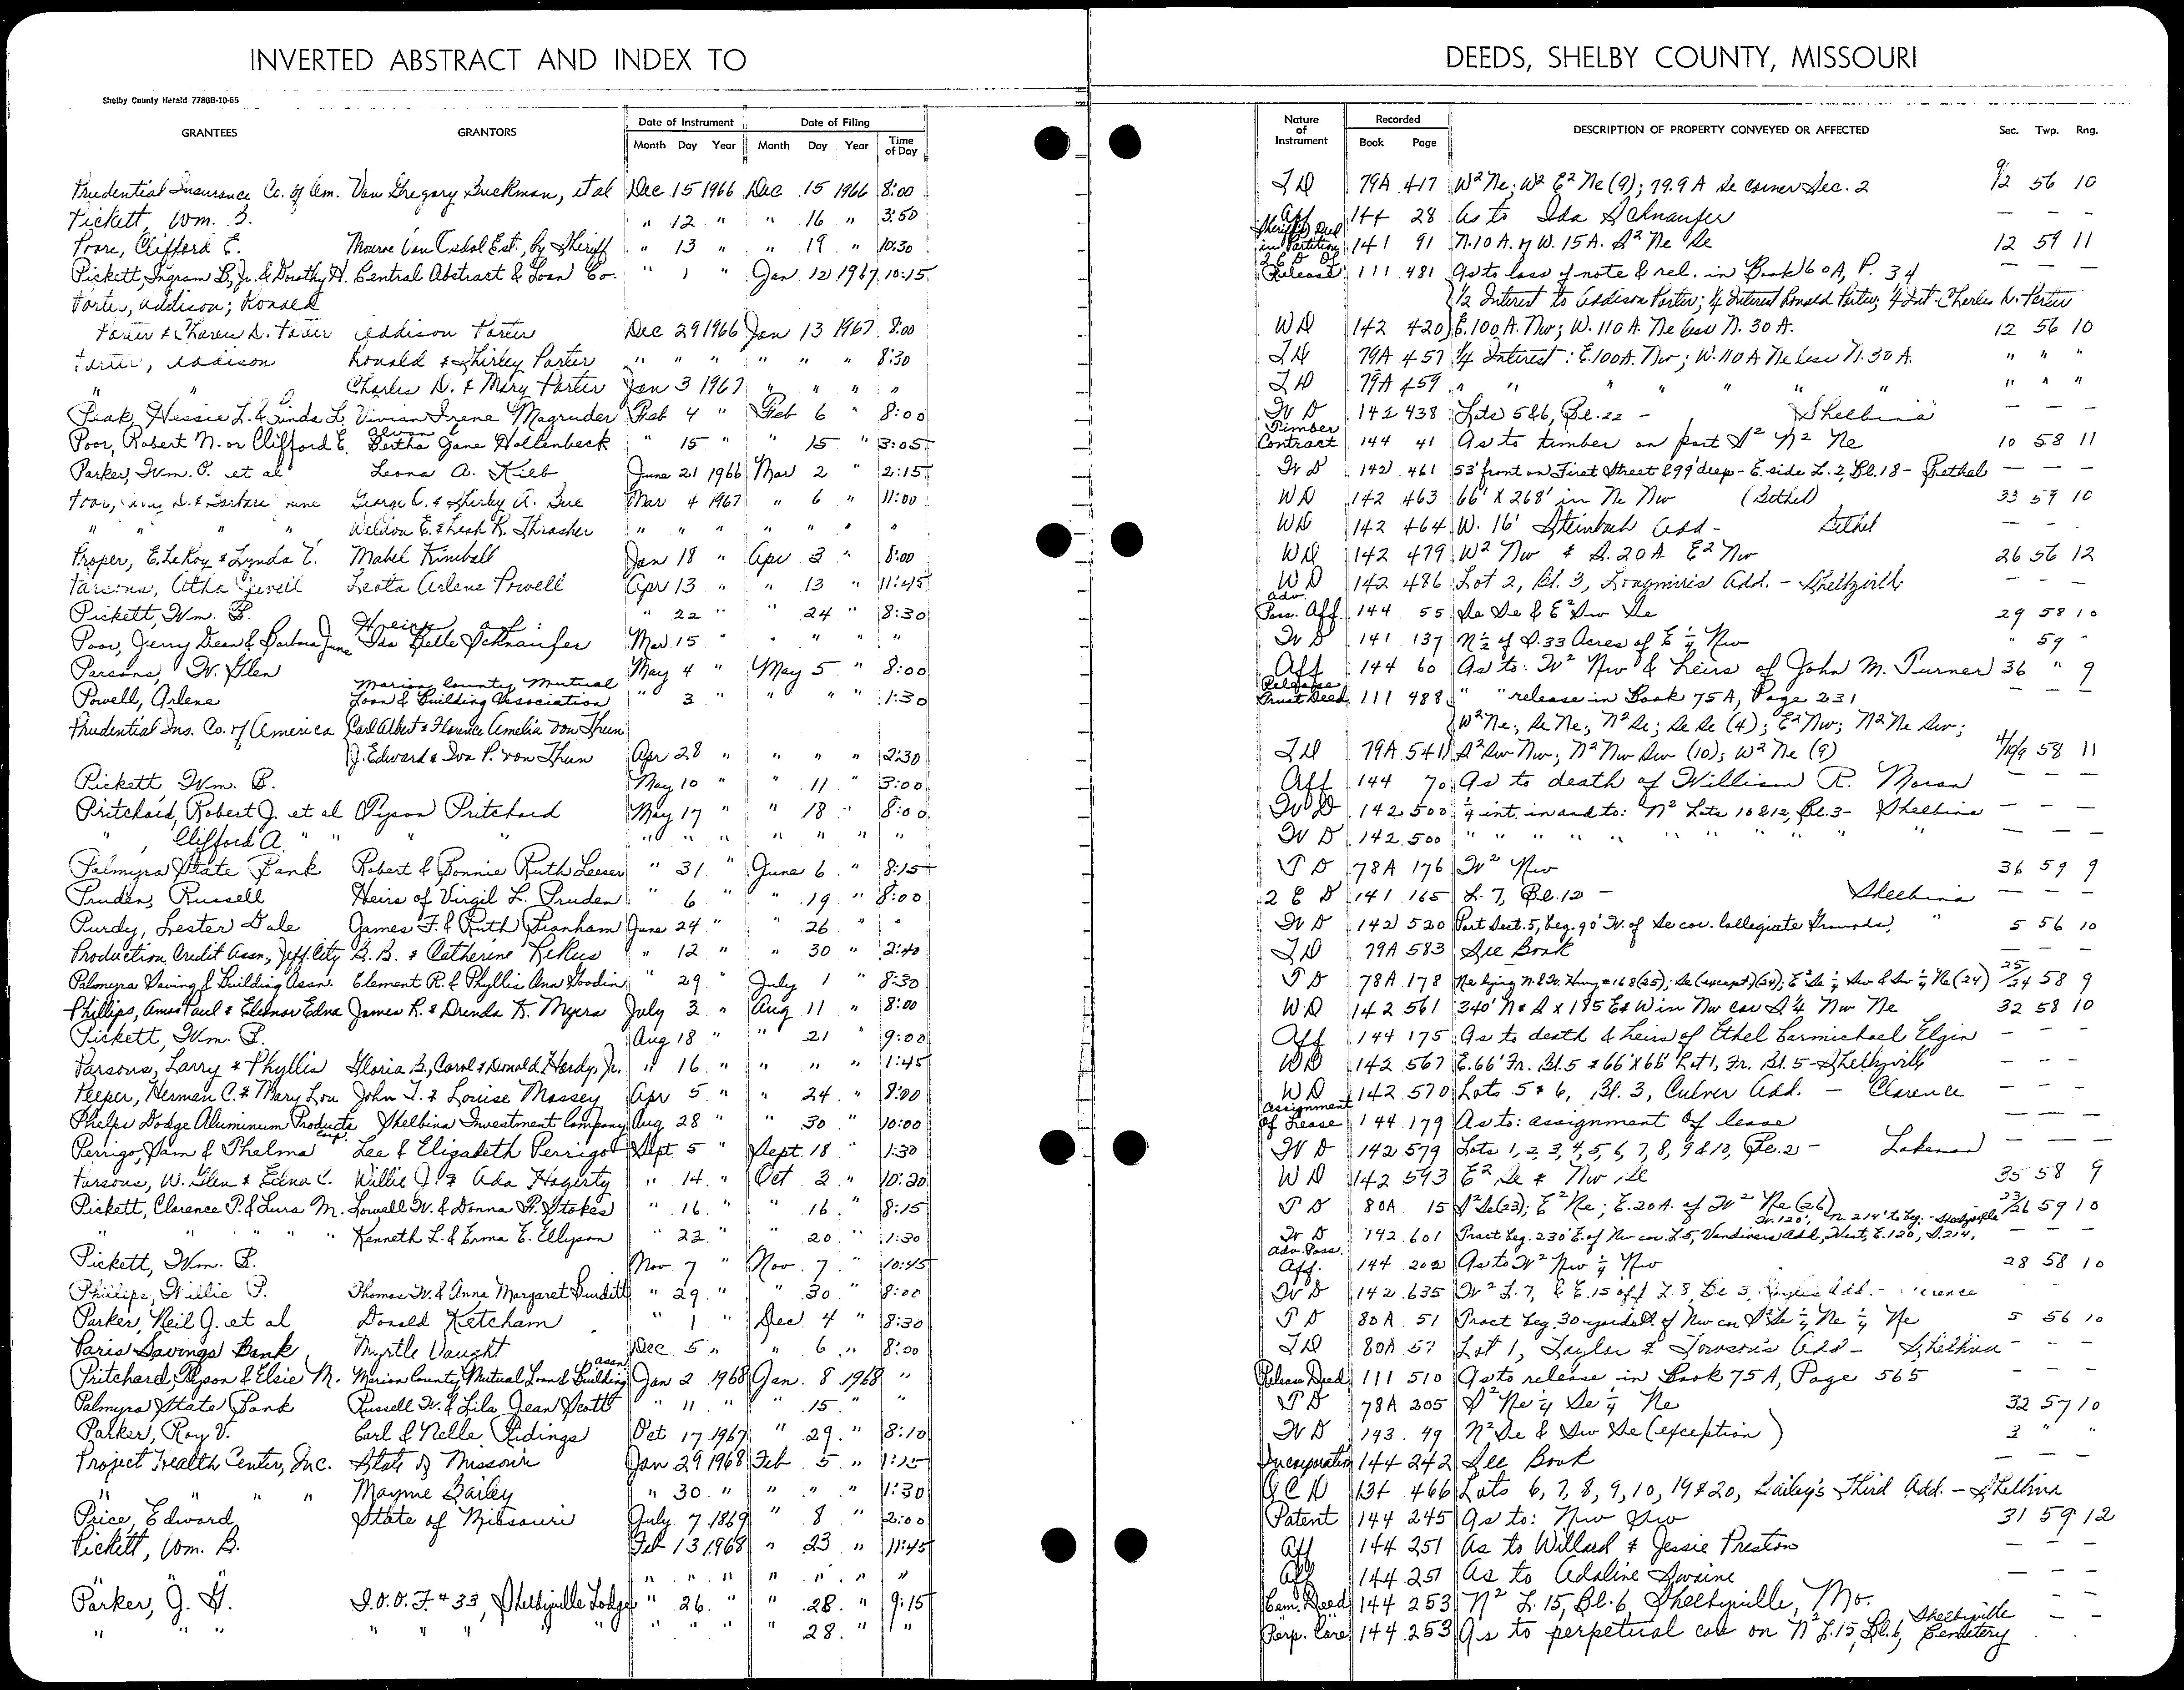 INVERTED ABSTRACT AND INDEX TO
DEEDS, SHELBY COUNTY, MISSOURI
Shelby County Herald 7780B-10-65
GRANTEES GRANTORS Date of Instrument Month Day Year Date of Filing Month Day Year Time of Day
Nature of Instrument Recorded Book Page DESCRIPTION OF PROPERTY CONVEYED OR AFFECTED Sec. Twp. Rng.
Prudential Insurance Co. of Am. Van Gregory Buckman, et al Dec 15 1966 Dec 15 1966 8:00 TD 79A 417 W² Ne; W² E² Ne (9); 79.9 A Se corner Sec. 2 9/2 56 10
Pickett, Wm. B. " 12 " " 16 " 3:50 Aff 144 28 As to Ida Schnaufer — — —
Poore, Clifford E. Monroe Van Est., by Sheriff " 13 " " 19 " 10:30 Sheriff's Deed in Partition 141 91 N. 10 A. of W. 15 A. S² Ne Se 12 59 11
Pickett, Ingram B., Jr. & Dorothy H. Central Abstract & Loan Co. " 1 " Jan 12 1967 10:15 Release 111 481 As to loss of note & rel. in Book 60A, P. 34 — — —
Porter, Addison; Ronald ½ Interest to Addison Porter; ¼ Interest Ronald Porter; ¼ Int. Charles D. Porter
Porter & Charles D. Porter Addison Porter Dec 29 1966 Jan 13 1967 8:00 WD 142 420 E. 100 A. Nw; W. 110 A. Ne less N. 30 A. 12 56 10
Porter, Addison Ronald & Shirley Porter " " " " " " 8:30 TD 79A 457 ¼ Interest: E. 100 A. Nw; W. 110 A Ne less N. 30 A. " " "
" " Charles D. & Mary Porter Jan 3 1967 " " " " TD 79A 459 " " " " " " " " "
Peak, Hessie L. & Linda L. Vivian Irene Magruder Feb 4 " Feb 6 " 8:00 W D 142 438 Lots 5 & 6, Bl. 22 - Shelbina — — —
Poor, Robert N. or Clifford E. Bertha Jane Hollenbeck " 15 " " 15 " 3:05 Timber Contract 144 41 As to timber on part S² N² Ne 10 58 11
Parker, Wm. P. et al Leona A. Kieb June 21 1966 Mar. 2 " 2:15 W D 142 461 53' front on First Street & 99' deep - E. side L. 2, Bl. 18 - Bethel — — —
George C. & Shirley A. Bue Mar 4 1967 " 6 " 11:00 WD 142 463 66' X 268' in Ne Nw (Bethel) 33 59 10
" " " " Weldon E. & Leah K. Thrasher " " " " " " " WD 142 464 W. 16' Steinbach Add - Bethel — — —
Proper, E. LeRoy & Lynda T. Mabel Kimball Jan 18 " Apr 3 " 8:00 WD 142 479 W² Nw & S. 20 A E² Nw 26 56 12
Parsons, Atha Jewell Leota Arlene Powell Apr 13 " " 13 " 11:45 WD 142 486 Lot 2, Bl. 3, Add. - Shelbyville — — —
Pickett, Wm. B. " 22 " " 24 " 8:30 Adv. Poss. Aff. 144 55 Se Se & E² Sw Se 29 58 10
Poor, Jerry Dean & Barbara June Heirs of: Ida Belle Schnaufer Mar 15 " " " " W D 141 137 N ½ of S. 33 Acres of E ½ Nw " 59 "
Parsons, W. Glen May 4 " May 5 " 8:00 Aff 144 60 As to: W² Nw & heirs of John M. Turner 36 " 9
Powell, Arlene Marion County Mutual Loan & Building Association " 3 " " " 1:30 Release Trust Deed 111 488 " " release in Book 75A, Page 231 — — —
Prudential Ins. Co. of America Carl Albert & Florence Amelia von Thun W² Ne; Se Ne; N² Se; Se Se (4); E² Nw; N² Ne Sw;
J. Edward & Iva P. von Thun Apr 28 " " " " 2:30 TD 79A 541 S² Sw Nw; N² Nw Sw (10); W² Ne (9) 4/10/9 58 11
Pickett, Wm. B. May 10 " " 11 " 3:00 Aff 144 70 As to death of William R. Moran — — —
Pritchard, Robert J. et al Tyson Pritchard May 17 " " 18 " 8:00 W D 142 500 ¼ int. in and to: N² Lots 10 & 12, Bl. 3 - Shelbina — — —
" Clifford A. " " " " " " " " " " " W D 142 500 " " " " " " " " " — — —
Palmyra State Bank Robert & Bonnie Ruth Leeser " 31 " June 6 " 8:15 T D 78A 176 W² Nw 36 59 9
Pruden, Russell Heirs of Virgil L. Pruden " 6 " 19 " 8:00 2 E D 141 165 L. 7, Bl. 12 - Shelbina — — —
Purdy, Lester Dale James F. & Ruth Branham June 24 " " 26 " " W D 142 520 Part Sect. 5, beg. 90' W. of Se cor. Collegiate Grounds, " 5 56 10
Production Credit Assn., Jeff. City B. B. & Catherine " 12 " " 30 " 2:40 TD 79A 583 See Book — — —
Palmyra Saving & Building Assn. Clement R. & Phyllis Ann Goodin " 29 " July 1 " 8:30 T D 78A 178 Ne lying N. & W. Hwy #168 (25); Se (except) (24); E² Se ¼ Sw & Sw ¼ Ne (24) 25/24 58 9
Phillips, Amos Paul & Eleanor Edna James R. & Drenda K. Myers July 3 " Aug 11 " 8:00 WD 142 561 340' N & S x 195 E & W in Nw cor S ¼ Nw Ne 32 58 10
Pickett, Wm. B. Aug 18 " " 21 " 9:00 Aff 144 175 As to death & heirs of Ethel Carmichael Elgin — — —
Parsons, Larry & Phyllis Gloria B., Carol & Donald Hardy, Jr. " 16 " " " " 1:45 WD 142 567 E. 66' Fr. Bl. 5 & 66' X 66' Lot 1, Fr. Bl. 5 - Shelbyville — — —
Peeper, Herman C. & Mary Lou John T. & Louise Massey Apr 5 " " 24 " 8:00 WD 142 570 Lots 5 & 6, Bl. 3, Culver Add. - Clarence — — —
Phelps Dodge Aluminum Products Corp. Shelbina Investment Company Aug 28 " " 30 " 10:00 Assignment of Lease 144 179 As to: assignment of lease — — —
Perrigo, Sam & Thelma Lee & Elizabeth Perrigo Sept 5 " Sept. 18 " 1:30 W D 142 579 Lots 1, 2, 3, 4, 5, 6, 7, 8, 9 & 10, Bl. 2 - Lakenan — — —
Parsons, W. Glen & Edna C. Willie J. & Ada Hagerty " 14 " Oct 2 " 10:20 WD 142 593 E² Se & Nw Se 35 58 9
Pickett, Clarence P. & Lura M. Lowell W. & Donna P. Stokes " 16 " " 16 " 8:15 T D 80A 15 S² Se (23); E² Ne; E. 20 A. of W² Ne (26) 23/26 59 10
" " " " Kenneth L. & Erma E. Ellyson " 23 " " 20 " 1:30 W D 142 601 Tract beg. 230' E. of Nw cor. L. 5, Vandivers Add., West, E. 120, S. 214, W. 120', N. 214' to beg. - Shelbyville
Pickett, Wm. B. Nov. 7 " Nov. 7 " 10:45 Adv. Poss. Aff. 144 202 As to W² Nw ¼ Nw 28 58 10
Phillips, Willie P. Thomas W. & Anna Margaret Burditt " 29 " " 30 " 8:00 W D 142 635 W² L. 7, & E. 15 off L. 8, Bl. 3, Add. -
Parker, Neil J. et al Donald Ketcham " 1 " Dec. 4 " 8:30 T D 80A 51 Tract beg. 30 yards S. of Nw cor S² Se ¼ Ne ¼ Ne 5 56 10
Paris Savings Bank Myrtle Vaught Dec 5 " " 6 " 8:00 TD 80A 57 Lot 1, Taylor & Towson's Add - Shelbina — — —
Pritchard, Tyson & Elsie M. Marion County Mutual Loan & Building Assn Jan 2 1968 Jan. 8 1968 " Release Deed 111 510 As to release in Book 75A, Page 565 — — —
Palmyra State Bank Russell W. & Lila Jean Scott " 11 " " 15 " " T D 78A 205 S² Ne ¼ Se ¼ Ne 32 57 10
Parker, Roy V. Carl & Nelle Ridings Oct 17 1967 " 29 " 8:10 W D 143 49 N² Se & Sw Se (exception) 3 " "
Project Health Center, Inc. State of Missouri Jan 29 1968 Feb 5 " 1:15 Incorporation 144 242 See Book — — —
" " " " Mayme Bailey " 30 " " " " 1:30 QCD 134 466 Lots 6, 7, 8, 9, 10, 19 & 20, Bailey's Third Add. - Shelbina
Price, Edward State of Missouri July 7 1869 " 8 " 2:00 Patent 144 245 As to: Nw Sw 31 59 12
Pickett, Wm. B. Feb 13 1968 " 23 " 11:45 Aff 144 251 As to Willard & Jessie Preston — — —
" " " " " " " " Aff 144 251 As to Adaline Swaine — — —
Parker, J. H. I.O.O.F. #33, Shelbyville Lodge " 26 " " 28 " 9:15 Cem. Deed 144 253 N² L. 15, Bl. 6 Shelbyville, Mo. — —
" " " " " " " " " " " 28 " " Perp. Care 144 253 As to perpetual care on N² L. 15, Bl. 6, Shelbyville Cemetery — —